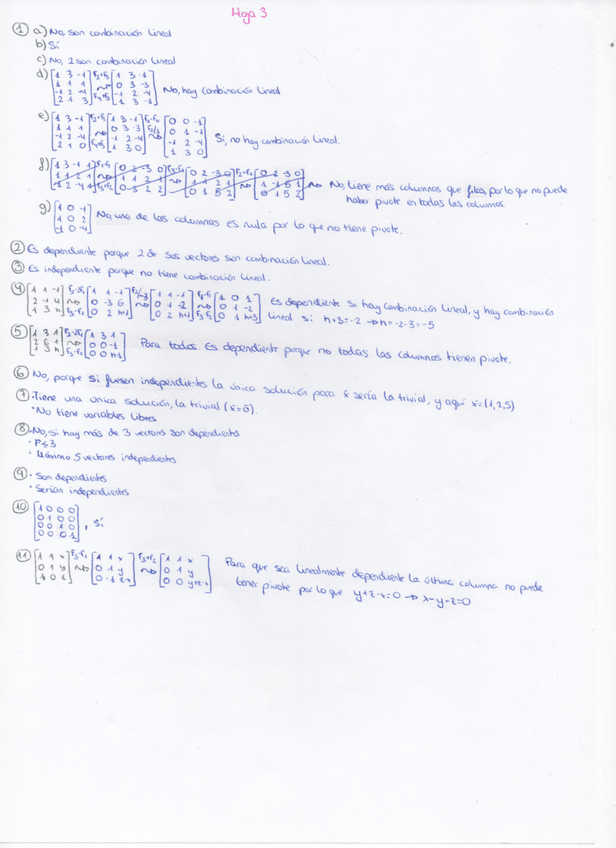 Hoja 3
① a) No, son combinación lineal
b) Sí
c) No, 2 son combinación lineal
d) [1 3 -1; 1 1 1; -1 2 -4; 2 1 3] F2+F3 F4+F3 ~> [1 3 -1; 0 3 -3; -1 2 -4; 1 3 -1] No, hay combinación lineal
e) [1 3 -1; 1 1 1; -1 2 -4; 2 1 0] F2+F3 F4+F3 ~> [1 3 -1; 0 3 -3; -1 2 -4; 1 3 0] F1-F4 F2/3 ~> [0 0 -1; 0 1 -1; -1 2 -4; 1 3 0] Sí, no hay combinación lineal.
f) No, tiene más columnas que filas, por lo que no puede
haber pivote en todas las columnas
g) [1 0 -1; 1 0 2; -1 0 -4] No, una de las columnas es nula por lo que no tiene pivote.
② Es dependiente porque 2 de sos vectores son combinación lineal.
③ Es independiente porque no tiene combinación lineal.
④ [1 1 -1; 2 -1 4; 1 3 h] F2-2F1 F3-F1 ~> [1 1 -1; 0 -3 6; 0 2 h+1] F2/-3 ~> [1 1 -1; 0 1 -2; 0 2 h+1] F1-F2 F3-F2 ~> [1 0 1; 0 1 -2; 0 1 h+3] Es dependiente si hay combinación lineal, y hay combinación
lineal si: h+3=-2 → h=-2-3=-5
⑤ [1 3 1; 2 6 1; 1 3 h] F2-2F1 F3-F1 ~> [1 3 1; 0 0 -1; 0 0 h-1] Para todos. Es dependiente porque no todas las columnas tienen pivote.
⑥ No, porque si fuesen independientes la única solución para x̄ sería la trivial, y aquí x̄=(1,2,5)
⑦ ·Tiene una única solución, la trivial (x̄=ō).
·No tiene variables libres
⑧ ·No, si hay más de 3 vectores son dependientes
· P≤3
· Máximo 5 vectores independientes
⑨ · Son dependientes
· Serían independientes
⑩ [1 0 0 0; 0 1 0 0; 0 0 1 0; 0 0 0 1], Sí
⑪ [1 1 x; 0 1 y; 1 0 z] F3-F1 ~> [1 1 x; 0 1 y; 0 -1 z-x] F3+F2 ~> [1 1 x; 0 1 y; 0 0 y+z-x] Para que sea linealmente dependiente la última columna no puede
tener pivote por lo que y+z-x=0 → x-y-z=0